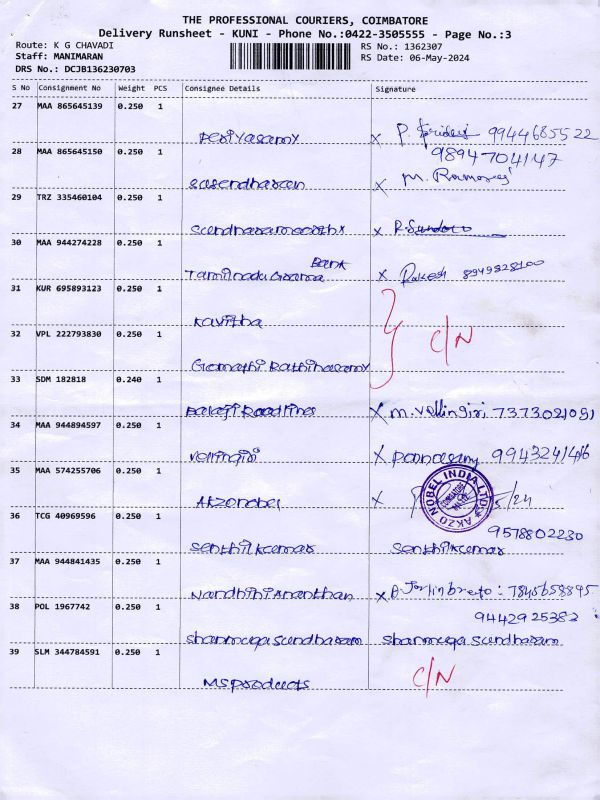 THE PROFESSIONAL COURIERS, COIMBATORE
Delivery Runsheet - KUNI - Phone No.:0422-3505555 - Page No.:3
Route: K G CHAVADI RS No.: 1362307
Staff: MANIMARAN RS Date: 06-May-2024
DRS No.: DCJB136230703
S No Consignment No Weight PCS Consignee Details Signature
27 MAA 865645139 0.250 1
Periyasamy x P. 9944685522
28 MAA 865645150 0.250 1 9894704147
Sasendharan x M. Ramaraj
29 TRZ 335460104 0.250 1
Sundharamoorthy x R. Sundara
30 MAA 944274228 0.250 1
Tamilnadu Grama Bank x Rakesh 8949828100
31 KUR 695893123 0.250 1
Kavitha
32 VPL 222793830 0.250 1 C/N
Gomathi Rathinasamy
33 SDM 182818 0.240 1
Balaji Roadlines x M. Vellingiri 7373021091
34 MAA 944894597 0.250 1
Vellingiri x Ponnusamy
35 MAA 574255706 0.250 1
Akzonobel x 5/24
AKZO NOBEL INDIA LTD.
36 TCG 40969596 0.250 1 9578802230
Senthilkumar Senthilkumar
37 MAA 944841435 0.250 1
Nandhini Ananthan x 7845658895
38 POL 1967742 0.250 1 9442925382
Shanmuga Sundharam Shanmuga Sundharam
39 SLM 344784591 0.250 1
MS Products C/N